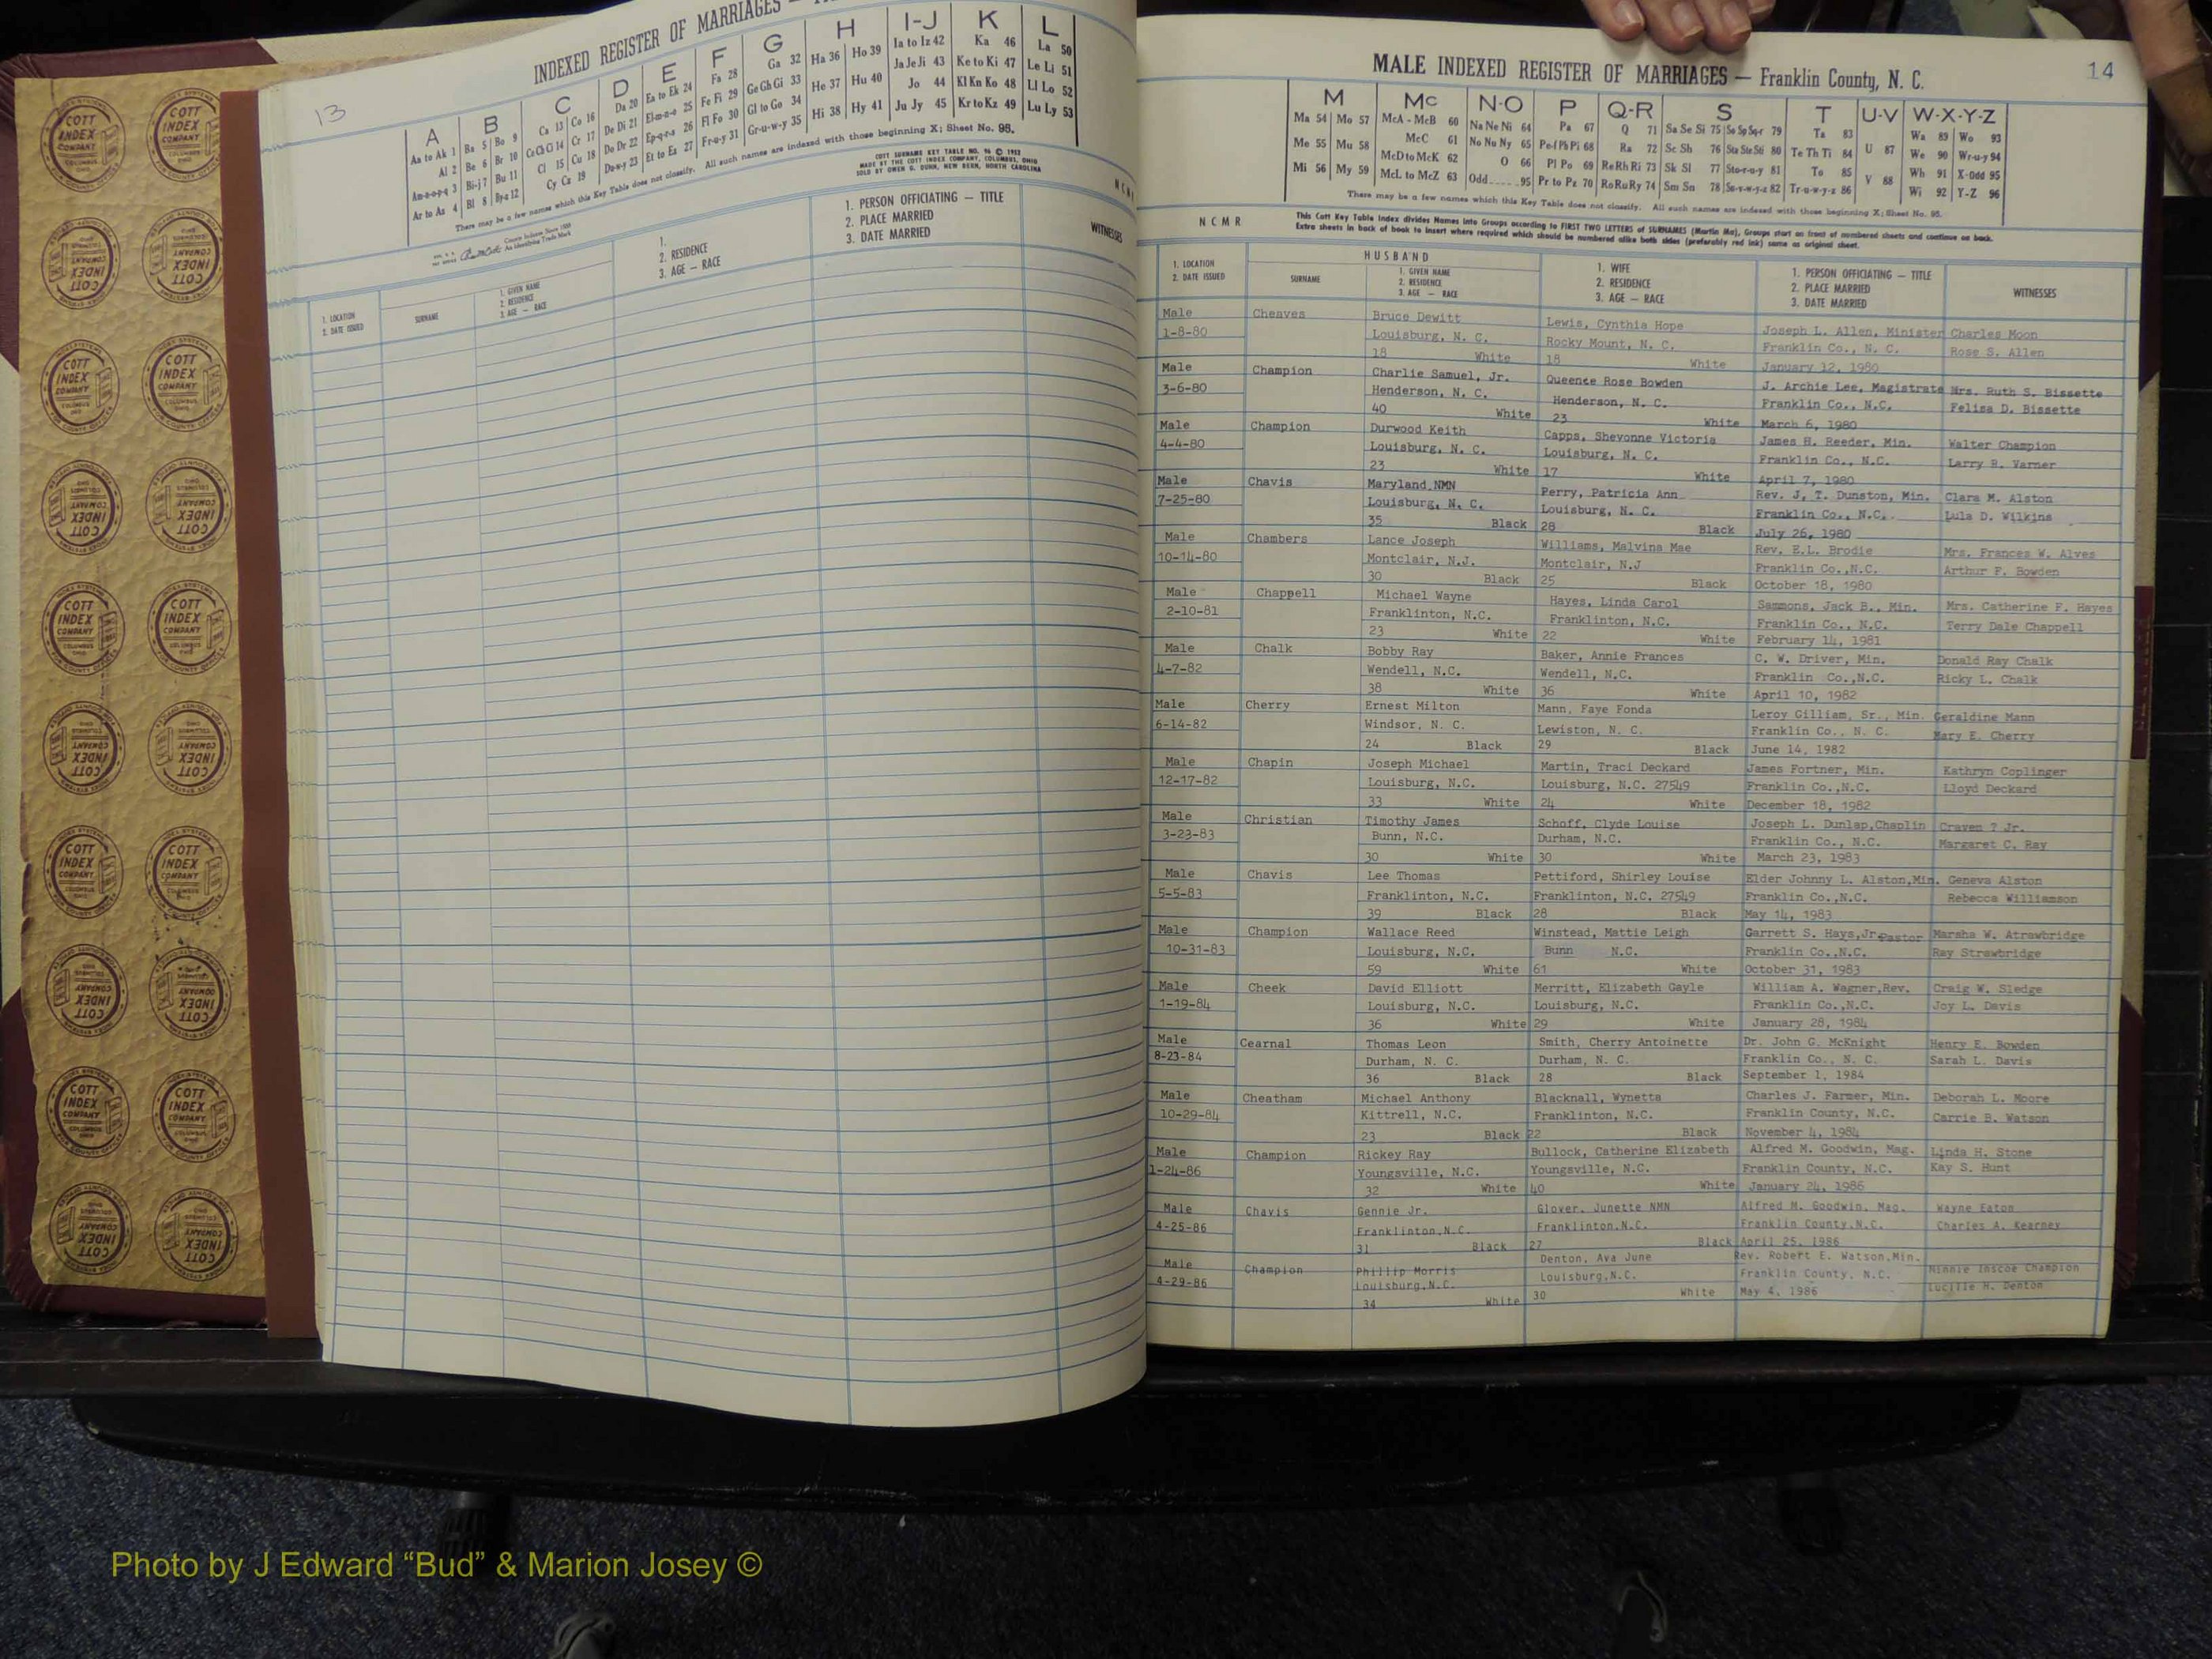 13
INDEXED REGISTER OF MARRIAGES
A B C D E F G H I-J K L
Aa to Ak 1 Ba 5 Bo 9 Ca 13 Co 16 Da 20 Ea to Ek 24 Fa 28 Ga 32 Ha 36 Ho 39 Ia to Iz 42 Ka 46 La 50
Al 2 Be 6 Br 10 Ce Ch Ci 14 Cr 17 De Di 21 El-m-n-o 25 Fe Fi 29 Ge Gh Gi 33 He 37 Hu 40 Ja Je Ji 43 Ke to Ki 47 Le Li 51
Am-n-o-p-q 3 Bi-j 7 Bu 11 Cl 15 Cu 18 Do Dr 22 Ep-q-r-s 26 Fl Fo 30 Gl to Go 34 Hi 38 Hy 41 Jo 44 Kl Kn Ko 48 Ll Lo 52
Ar to Az 4 Bl 8 By-z 12 Cy Cz 19 Du-w-y 23 Et to Ez 27 Fr-u-y 31 Gr-u-w-y 35 Ju Jy 45 Kr to Kz 49 Lu Ly 53
There may be a few names which this Key Table does not classify. All such names are indexed with those beginning X; Sheet No. 95.
COTT SURNAME KEY TABLE NO. 96 © 1952
MADE BY THE COTT INDEX COMPANY, COLUMBUS, OHIO
SOLD BY OWEN G. DUNN, NEW BERN, NORTH CAROLINA
1. LOCATION
2. DATE ISSUED
SURNAME
1. GIVEN NAME
2. RESIDENCE
3. AGE — RACE
1.
2. RESIDENCE
3. AGE — RACE
1. PERSON OFFICIATING — TITLE
2. PLACE MARRIED
3. DATE MARRIED
WITNESSES
COTT
INDEX
COMPANY
COLUMBUS
OHIO
INDEX SYSTEMS
FOR COUNTY OFFICES
MALE INDEXED REGISTER OF MARRIAGES — Franklin County, N. C.
14
M Mc N-O P Q-R S T U-V W-X-Y-Z
Ma 54 Mo 57 McA - McB 60 Na Ne Ni 64 Pa 67 Q 71 Sa Se Si 75 So Sp Sq-r 79 Ta 83 U 87 Wa 89 Wo 93
Me 55 Mu 58 McC 61 No Nu Ny 65 Pe-f Ph Pi 68 Ra 72 Sc Sh 76 Sta Ste Sti 80 Te Th Ti 84 We 90 Wr-u-y 94
Mi 56 My 59 McD to McK 62 O 66 Pl Po 69 Re Rh Ri 73 Sk Sl 77 Sto-r-u-y 81 To 85 V 88 Wh 91 X-Odd 95
McL to McZ 63 Odd 95 Pr to Pz 70 Ro Ru Ry 74 Sm Sn 78 Su-v-w-y-z 82 Tr-u-w-y-z 86 Wi 92 Y-Z 96
There may be a few names which this Key Table does not classify. All such names are indexed with those beginning X; Sheet No. 95.
NCMR
This Cott Key Table Index divides Names into Groups according to FIRST TWO LETTERS of SURNAMES (Martin Ma), Groups start on front of numbered sheets and continue on back.
Extra sheets in back of book to insert where required which should be numbered alike both sides (preferably red ink) same as original sheet.
HUSBAND
1. LOCATION
2. DATE ISSUED
SURNAME
1. GIVEN NAME
2. RESIDENCE
3. AGE — RACE
1. WIFE
2. RESIDENCE
3. AGE — RACE
1. PERSON OFFICIATING — TITLE
2. PLACE MARRIED
3. DATE MARRIED
WITNESSES
Male Cheaves Bruce Dewitt Lewis, Cynthia Hope Joseph L. Allen, Minister Charles Moon
1-8-80 Louisburg, N. C. Rocky Mount, N. C. Franklin Co., N. C. Rose S. Allen
18 White 18 White January 12, 1980
Male Champion Charlie Samuel, Jr. Queence Rose Bowden J. Archie Lee, Magistrate Mrs. Ruth S. Bissette
3-6-80 Henderson, N. C. Henderson, N. C. Franklin Co., N.C. Felisa D. Bissette
40 White 23 White March 6, 1980
Male Champion Durwood Keith Capps, Shevonne Victoria James H. Reeder, Min. Walter Champion
4-4-80 Louisburg, N. C. Louisburg, N. C. Franklin Co., N.C. Larry R. Varner
23 White 17 White April 7, 1980
Male Chavis Maryland NMN Perry, Patricia Ann Rev. J. T. Dunston, Min. Clara M. Alston
7-25-80 Louisburg, N. C. Louisburg, N. C. Franklin Co., N.C. Lula D. Wilkins
35 Black 28 Black July 26, 1980
Male Chambers Lance Joseph Williams, Malvina Mae Rev. E.L. Brodie Mrs. Frances W. Alves
10-14-80 Montclair, N.J. Montclair, N.J Franklin Co.,N.C. Arthur F. Bowden
30 Black 25 Black October 18, 1980
Male Chappell Michael Wayne Hayes, Linda Carol Sammons, Jack B., Min. Mrs. Catherine F. Hayes
2-10-81 Franklinton, N.C. Franklinton, N.C. Franklin Co., N.C. Terry Dale Chappell
23 White 22 White February 14, 1981
Male Chalk Bobby Ray Baker, Annie Frances C. W. Driver, Min. Donald Ray Chalk
4-7-82 Wendell, N.C. Wendell, N.C. Franklin Co.,N.C. Ricky L. Chalk
38 White 36 White April 10, 1982
Male Cherry Ernest Milton Mann, Faye Fonda Leroy Gilliam, Sr., Min. Geraldine Mann
6-14-82 Windsor, N. C. Lewiston, N. C. Franklin Co., N. C. Mary E. Cherry
24 Black 29 Black June 14, 1982
Male Chapin Joseph Michael Martin, Traci Deckard James Fortner, Min. Kathryn Coplinger
12-17-82 Louisburg, N.C. Louisburg, N.C. 27549 Franklin Co.,N.C. Lloyd Deckard
33 White 24 White December 18, 1982
Male Christian Timothy James Schoff, Clyde Louise Joseph L. Dunlap,Chaplin Craven ? Jr.
3-23-83 Bunn, N.C. Durham, N.C. Franklin Co., N.C. Margaret C. Ray
30 White 30 White March 23, 1983
Male Chavis Lee Thomas Pettiford, Shirley Louise Elder Johnny L. Alston,Min. Geneva Alston
5-5-83 Franklinton, N.C. Franklinton, N.C. 27549 Franklin Co.,N.C. Rebecca Williamson
39 Black 28 Black May 14, 1983
Male Champion Wallace Reed Winstead, Mattie Leigh Garrett S. Hays,Jr.Pastor Marsha W. Atrawbridge
10-31-83 Louisburg, N.C. Bunn N.C. Franklin Co.,N.C. Ray Strawbridge
59 White 61 White October 31, 1983
Male Cheek David Elliott Merritt, Elizabeth Gayle William A. Wagner,Rev. Craig W. Sledge
1-19-84 Louisburg, N.C. Louisburg, N.C. Franklin Co.,N.C. Joy L. Davis
36 White 29 White January 28, 1984
Male Cearnal Thomas Leon Smith, Cherry Antoinette Dr. John G. McKnight Henry E. Bowden
8-23-84 Durham, N. C. Durham, N. C. Franklin Co., N. C. Sarah L. Davis
36 Black 28 Black September 1, 1984
Male Cheatham Michael Anthony Blacknall, Wynetta Charles J. Farmer, Min. Deborah L. Moore
10-29-84 Kittrell, N.C. Franklinton, N.C. Franklin County, N.C. Carrie B. Watson
23 Black 22 Black November 4, 1984
Male Champion Rickey Ray Bullock, Catherine Elizabeth Alfred M. Goodwin, Mag. Linda H. Stone
1-24-86 Youngsville, N.C. Youngsville, N.C. Franklin County, N.C. Kay S. Hunt
32 White 40 White January 24, 1986
Male Chavis Gennie Jr. Glover, Junette NMN Alfred M. Goodwin, Mag. Wayne Eaton
4-25-86 Franklinton,N.C. Franklinton,N.C. Franklin County,N.C. Charles A. Kearney
31 Black 27 Black April 25, 1986
Male Champion Phillip Morris Denton, Ava June Rev. Robert E. Watson,Min. Minnie Inscoe Champion
4-29-86 Louisburg,N.C. Louisburg,N.C. Franklin County, N.C. Lucille H. Denton
34 White 30 White May 4, 1986
Photo by J Edward “Bud” & Marion Josey ©